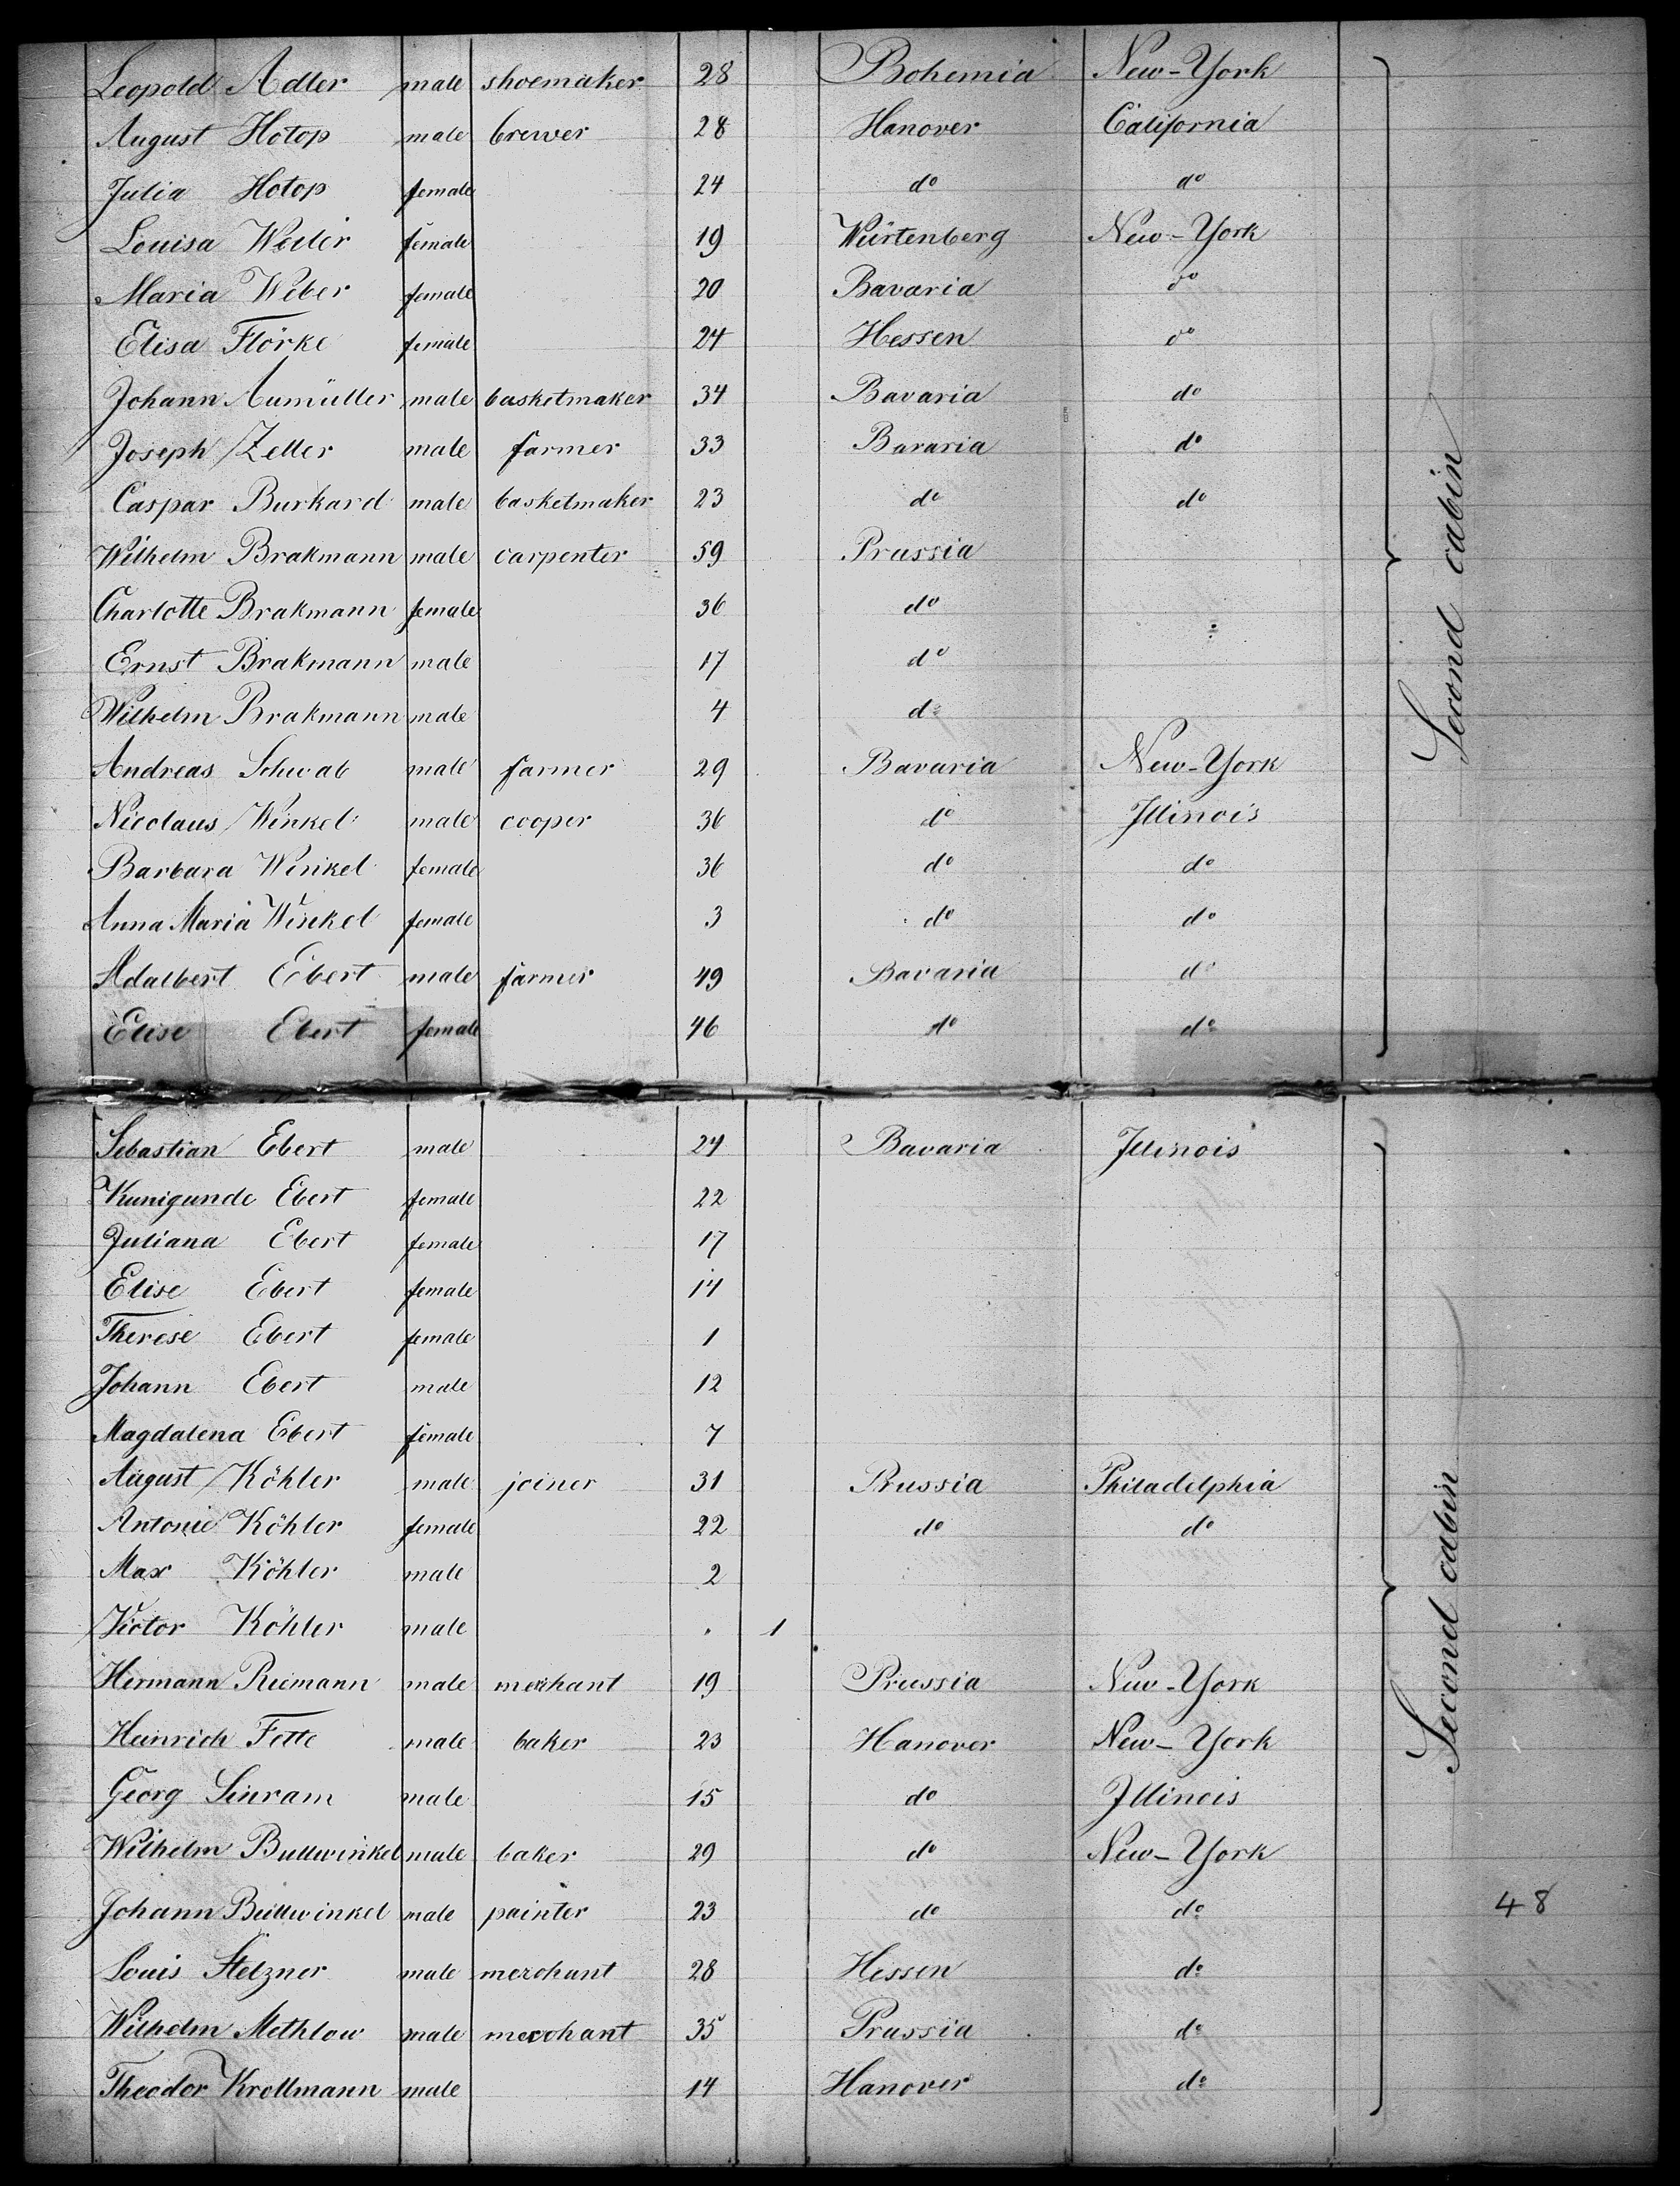 Leopold Adler male shoemaker 28 Bohemia New-York
August Hotop male brewer 28 Hanover California
Julia Hotop female 24 do do
Louisa Weiler female 19 Würtenberg New-York
Maria Weber female 20 Bavaria do
Elisa Flörke female 24 Hessen do
Johann Aumüller male basketmaker 34 Bavaria do
Joseph Zeller male farmer 33 Bavaria do
Caspar Burkard male basketmaker 23 do do
Wilhelm Brakmann male carpenter 59 Prussia
Charlotte Brakmann female 36 do
Ernst Brakmann male 17 do
Wilhelm Brakmann male 4 do
Andreas Schwab male farmer 29 Bavaria New-York
Nicolaus Winkel male cooper 36 do Illinois
Barbara Winkel female 36 do do
Anna Maria Winkel female 3 do do
Adalbert Ebert male farmer 49 Bavaria do
Elise Ebert female 46 do do
Second cabin
Sebastian Ebert male 24 Bavaria Illinois
Kunigunde Ebert female 22
Juliana Ebert female 17
Elise Ebert female 14
Therese Ebert female 1
Johann Ebert male 12
Magdalena Ebert female 7
August Köhler male joiner 31 Prussia Philadelphia
Antonie Köhler female 22 do do
Max Köhler male 2
Victor Köhler male . 1
Hermann Riemann male merchant 19 Prussia New-York
Heinrich Fette male baker 23 Hanover New-York
Georg Sinram male 15 do Illinois
Wilhelm Bullwinkel male baker 29 do New-York
Johann Bullwinkel male painter 23 do do
Louis Stelzner male merchant 28 Hessen do
Wilhelm Methlow male merchant 35 Prussia do
Theodor Krollmann male 14 Hanover do
Second cabin
48